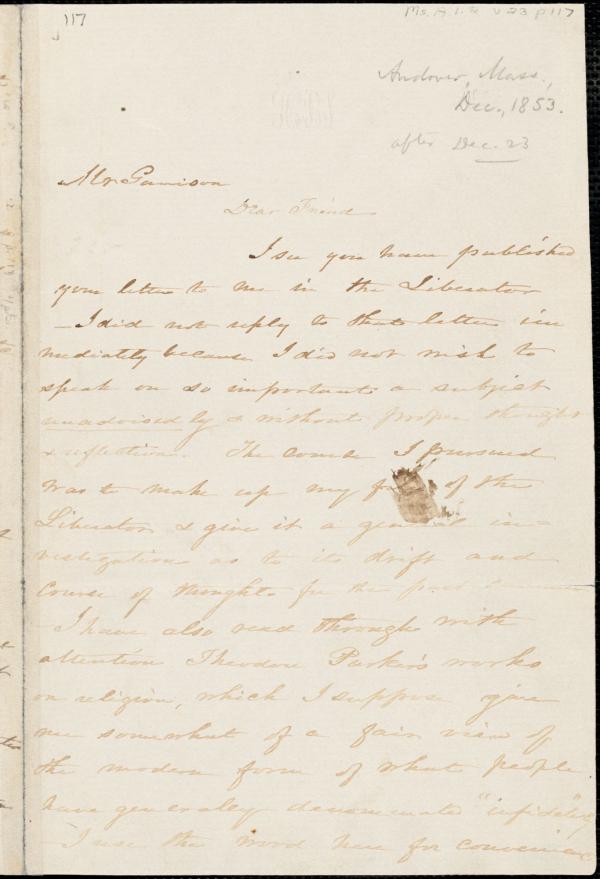 117
Ms. A. 1. 2 v. 23 p 117
Andover, Mass.,
Dec., 1853.
after Dec. 23
Mr Garrison
Dear Friend
I see you have published
your letter to me in the Liberator
– I did not reply to that letter im
mediatly because I did not wish to
speak on so important a subject
unadvisedly & without proper thought
& reflection. The course I pursued
was to make up my of the
Liberator & give it a general in=
vestigation as to its drift and
course of thought for the past
– I have also read through with
attention Theodore Parker's works
on religion, which I suppose give
me somewhat of a fair view of
the modern form of what people
have generaley denominate "infidelity"
– I use the word here for convenience